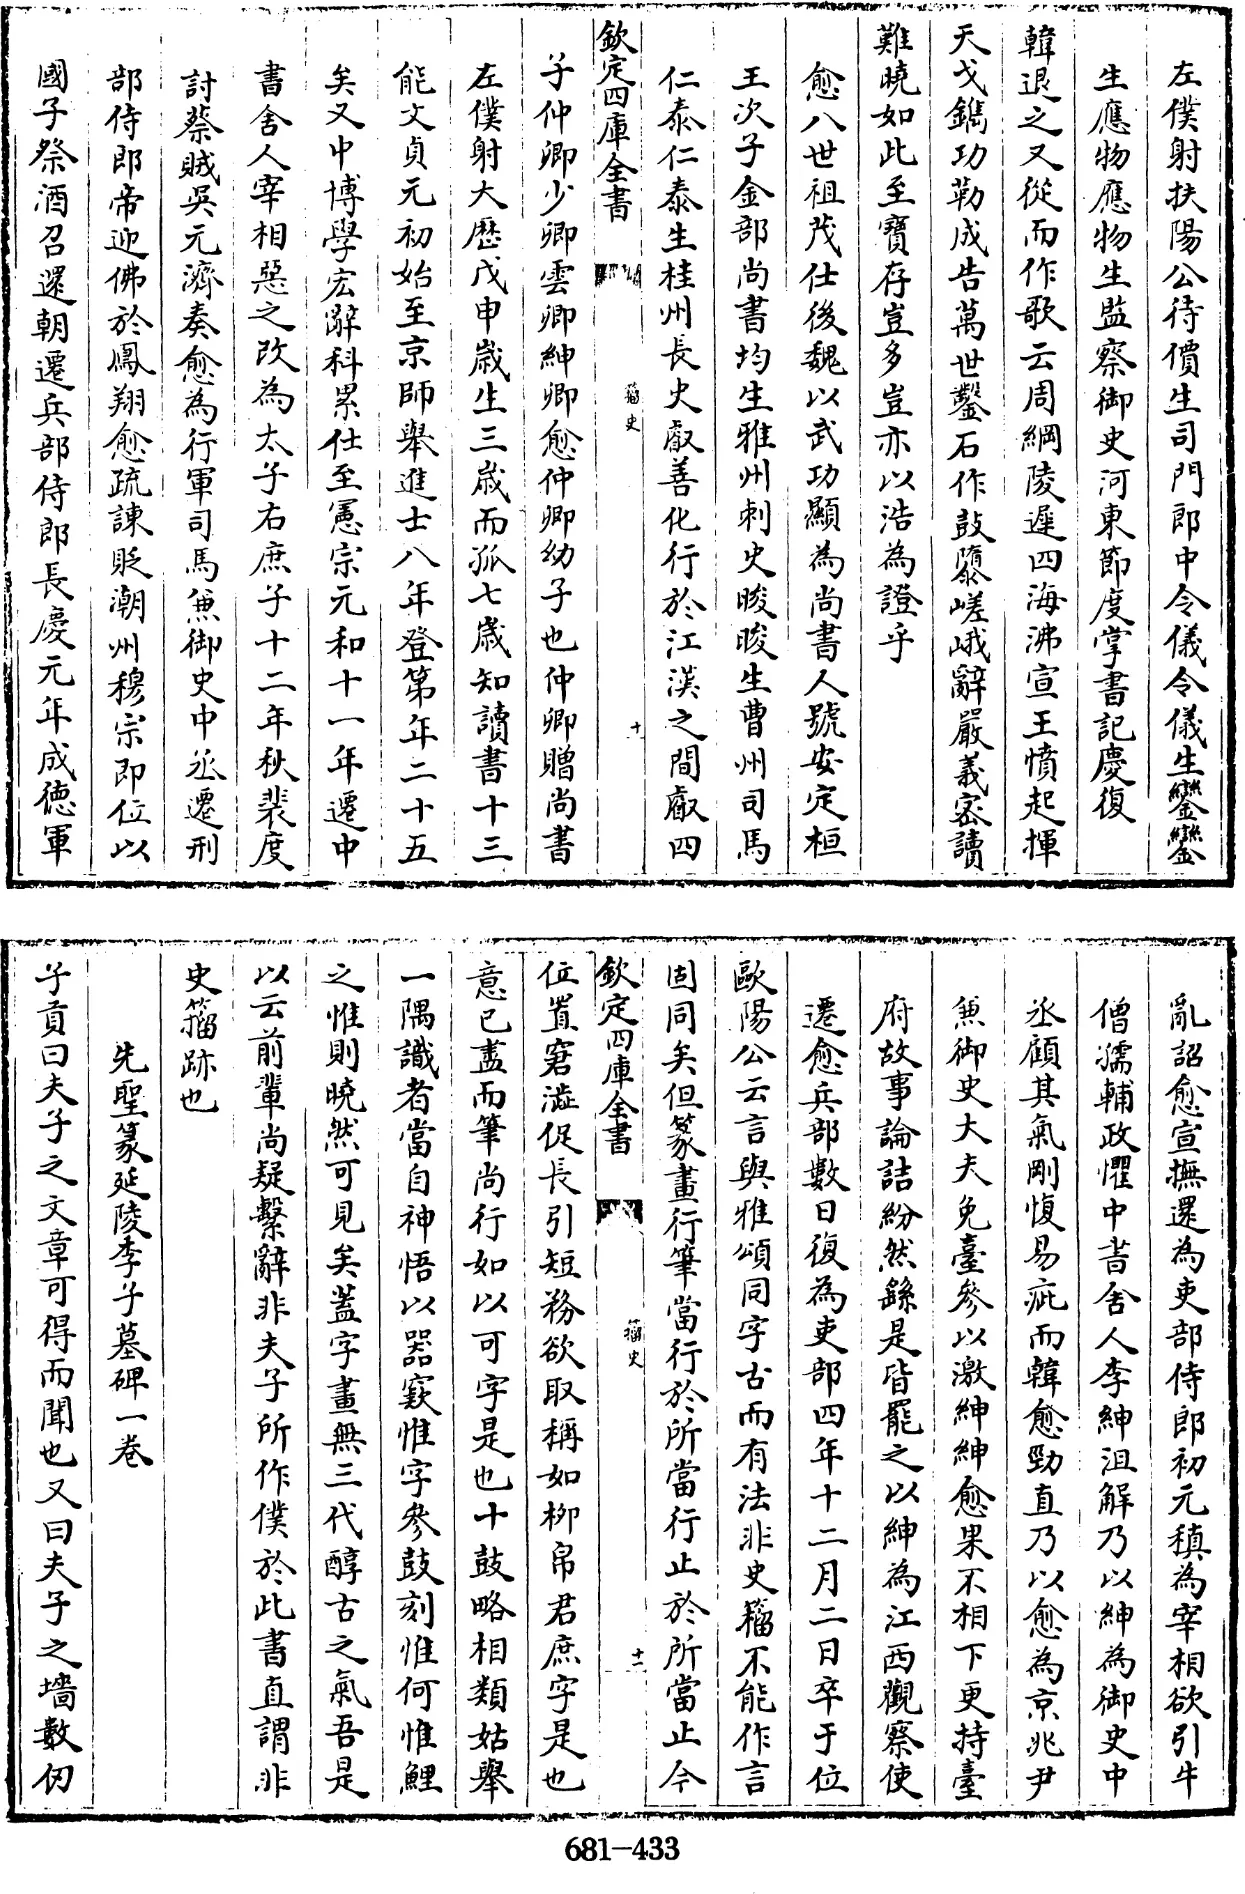 左僕射扶陽公待價生司門郎中令儀令儀生鑾鑾
生應物應物生監察御史河東節度掌書記慶復
韓退之又從而作歌云周綱陵遲四海沸宣王憤起揮
天戈鐫功勒成告萬世鑿石作鼓隳嵯峨辭嚴義密讀
難曉如此至寶存豈多豈亦以浩為證乎
愈八世祖茂仕後魏以武功顯為尚書人號安定桓
王次子金部尚書均生雅州刺史晙晙生曹州司馬
仁泰仁泰生桂州長史叡善化行於江漢之間叡四
欽定四庫全書
籀史
十
子仲卿少卿雲卿紳卿愈仲卿幼子也仲卿贈尚書
左僕射大歷戊申歲生三歲而孤七歲知讀書十三
能文貞元初始至京師舉進士八年登第年二十五
矣又中博學宏辭科累仕至憲宗元和十一年遷中
書舍人宰相惡之改為太子右庶子十二年秋裴度
討蔡賊吳元濟奏愈為行軍司馬兼御史中丞遷刑
部侍郎帝迎佛於鳳翔愈疏諫貶潮州穆宗即位以
國子祭酒召還朝遷兵部侍郎長慶元年成德軍
亂詔愈宣撫還為吏部侍郎初元稹為宰相欲引牛
僧孺輔政懼中書舍人李紳沮解乃以紳為御史中
丞顧其氣剛愎易疵而韓愈勁直乃以愈為京兆尹
兼御史大夫免臺參以激紳紳愈果不相下更持臺
府故事論詰紛然繇是皆罷之以紳為江西觀察使
遷愈兵部數日復為吏部四年十二月二日卒于位
歐陽公云言與雅頌同字古而有法非史籀不能作言
固同矣但篆畫行筆當行於所當行止於所當止今
欽定四庫全書
籀史
十一
位置窘澁促長引短務欲取稱如柳帛君庶字是也
意已盡而筆尚行如以可字是也十鼓略相類姑舉
一隅識者當自神悟以器窾惟字參鼓刻惟何惟鯉
之惟則曉然可見矣蓋字畫無三代醇古之氣吾是
以云前輩尚疑繫辭非夫子所作僕於此書直謂非
史籀跡也
先聖篆延陵季子墓碑一卷
子貢曰夫子之文章可得而聞也又曰夫子之墻數仞
681-433